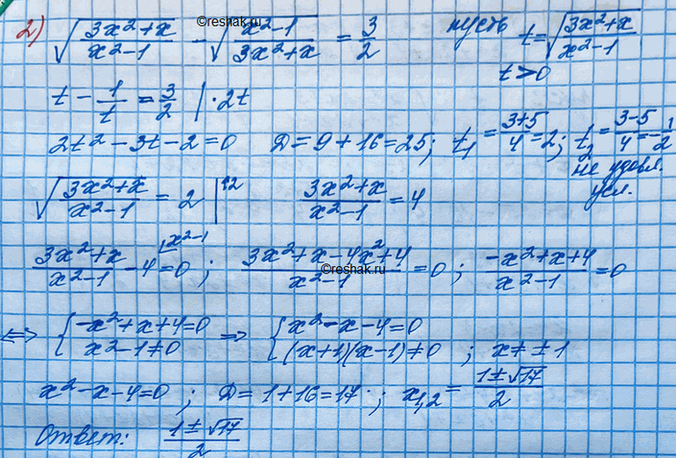 ©reshak.ru
2) √((3x²+x)/(x²-1)) - √((x²-1)/(3x²+x)) = 3/2 пусть t=√((3x²+x)/(x²-1))
t>0
t - 1/t = 3/2 | ·2t
2t² - 3t - 2 = 0 D = 9+16 = 25; t₁ = (3+5)/4 = 2; t₂ = (3-5)/4 = -1/2
не удовл.
усл.
√((3x²+x)/(x²-1)) = 2 |↑2 (3x²+x)/(x²-1) = 4
(3x²+x)/(x²-1) - 4 = 0; (3x²+x-4x²+4)/(x²-1) = 0; (-x²+x+4)/(x²-1) = 0
©reshak.ru
⇔ { -x²+x+4=0 ⇒ { x²-x-4=0
x²-1≠0 (x+1)(x-1)≠0 ; x≠±1
x²-x-4=0 ; D=1+16=17 ; x₁,₂ = (1±√17)/2
Ответ: (1±√17)/2